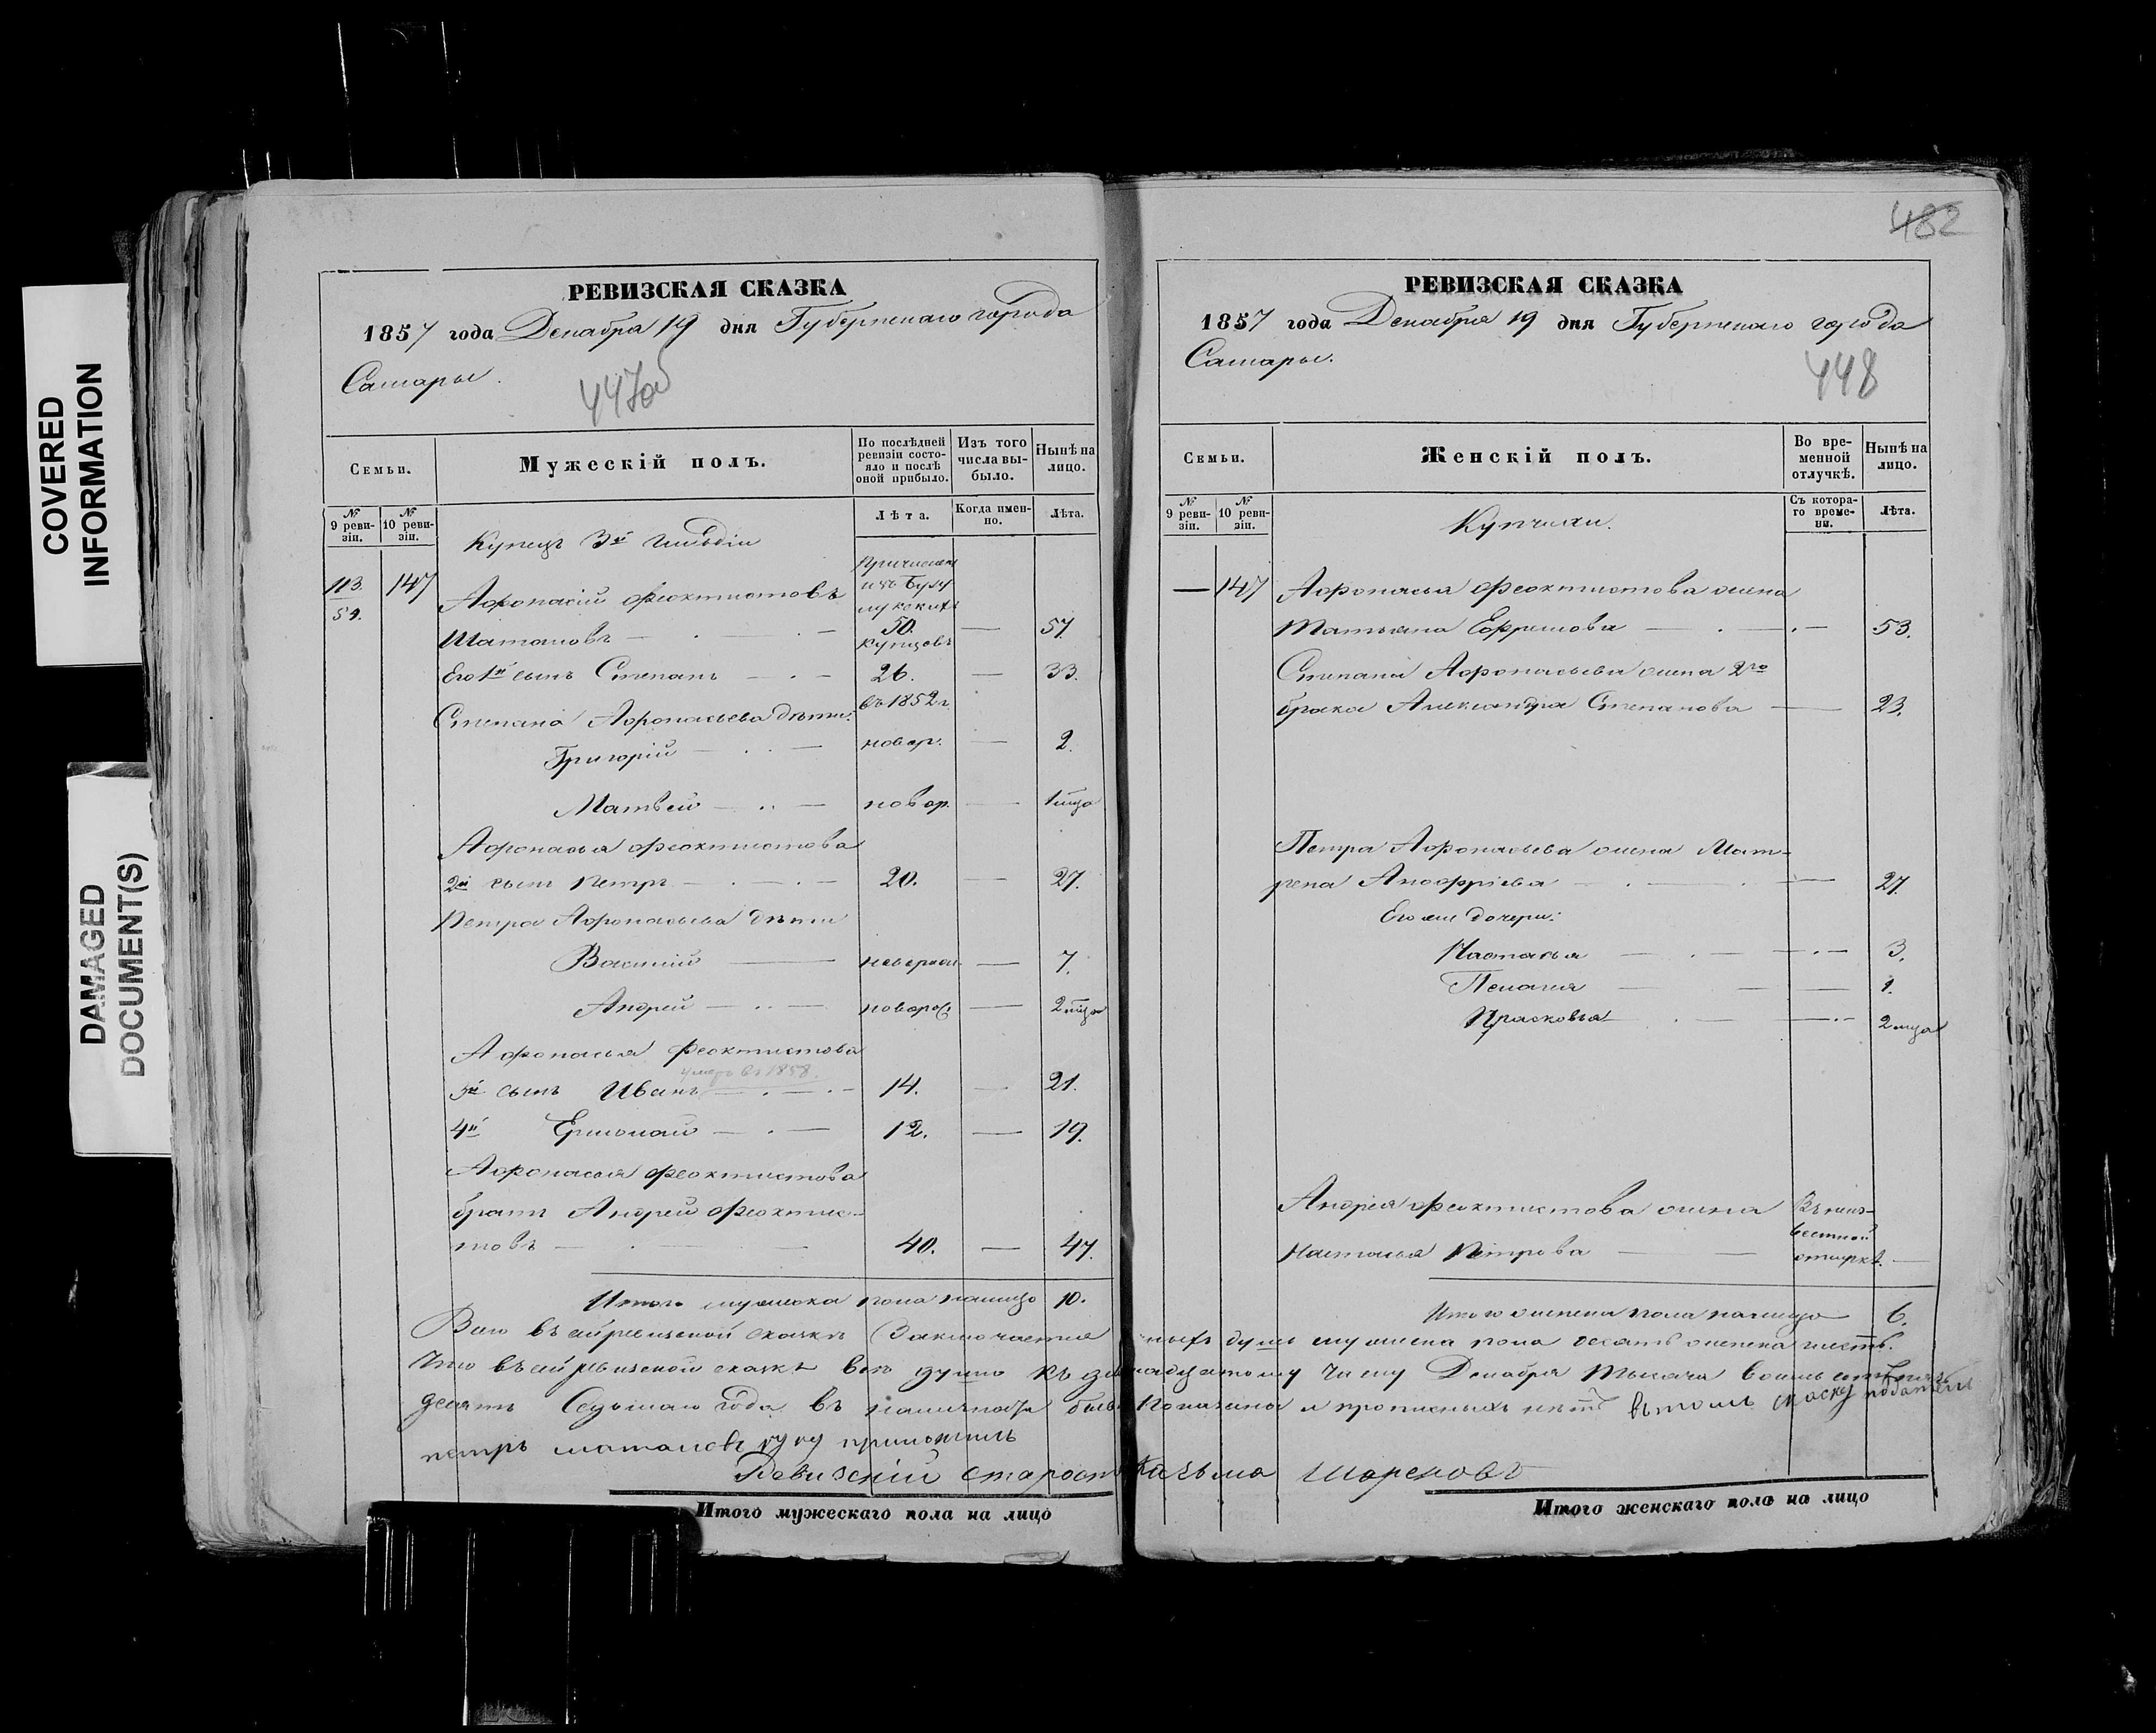 COVERED
INFORMATION
DAMAGED
DOCUMENT(S)
РЕВИЗСКАЯ СКАЗКА
1857 года Декабря 19 дня Губернскаго города
Самары.
447об
Семьи.
Мужескій полъ.
По послѣдней ревизіи состояло и послѣ оной прибыло.
Изъ того числа выбыло.
Нынѣ на лицо.
№ 9 ревизіи.
№ 10 ревизіи.
Лѣта.
Когда именно.
Лѣта.
Купецъ 3й гильдіи
113. 147 Афонасій Феоктистовъ
59.
причислен
изъ Бузу
лукскихъ
50.
купцовъ
Шаталовъ — 57.
Его 1й сынъ Степанъ — 26. — 33.
въ 1852 г.
Степана Афонасьева дѣти:
Григорій — новор. — 2.
Матвей — новор. — 1 мца
Афонасья Феоктистова
2й сынъ Петръ — 20. — 27.
Петра Афонасьева дѣти
Василій — — 7.
Андрей — новорож. — 2 мца
Афонасья Феоктистова
умеръ въ 1858.
3й сынъ Иванъ — 14. — 21.
4й Ермолай — 12. — 19.
Афонасья Феоктистова
братъ Андрей Феоктис-
товъ — 40. — 47.
Итого мужеска пола налицо 10.
482
РЕВИЗСКАЯ СКАЗКА
1857 года Декабря 19 дня Губернскаго города
Самары.
448
Семьи.
Женскій полъ.
Во временной отлучкѣ.
Нынѣ на лицо.
№ 9 ревизіи.
№ 10 ревизіи.
Съ котораго времени.
Лѣта.
Купчихи.
— 147 Афонасья Феоктистова жена
Татьяна Ефремова — 53.
Степана Афонасьева жена 2го
брака Александра Степанова — 23.
Петра Афонасьева жена Мат-
рена Анофріева — 27.
Его же дочери:
Настасья — 3.
Пелагія — 1.
Прасковья — 2 мца
Андрея Феоктистова жена
Настасья Петрова —
Въ неиз-
вестной
отлучкѣ. —
Итого женска пола налицо 6.
Всего въ сей ревизской сказкѣ Заключается ныхъ душъ мужеска пола десять женска шесть.
Что въ сей ревизской сказкѣ все души къ девнадцатому числу Декабря тысяча восемь сотъ пять
десятъ Седьмаго года въ наличности были Показаны и прописныхъ нѣтъ въ томъ сказку податель
петръ шаталовъ руку приложилъ
Ревизскій староста Казьма Шареновъ
Итого мужескаго пола на лицо
Итого женскаго пола на лицо